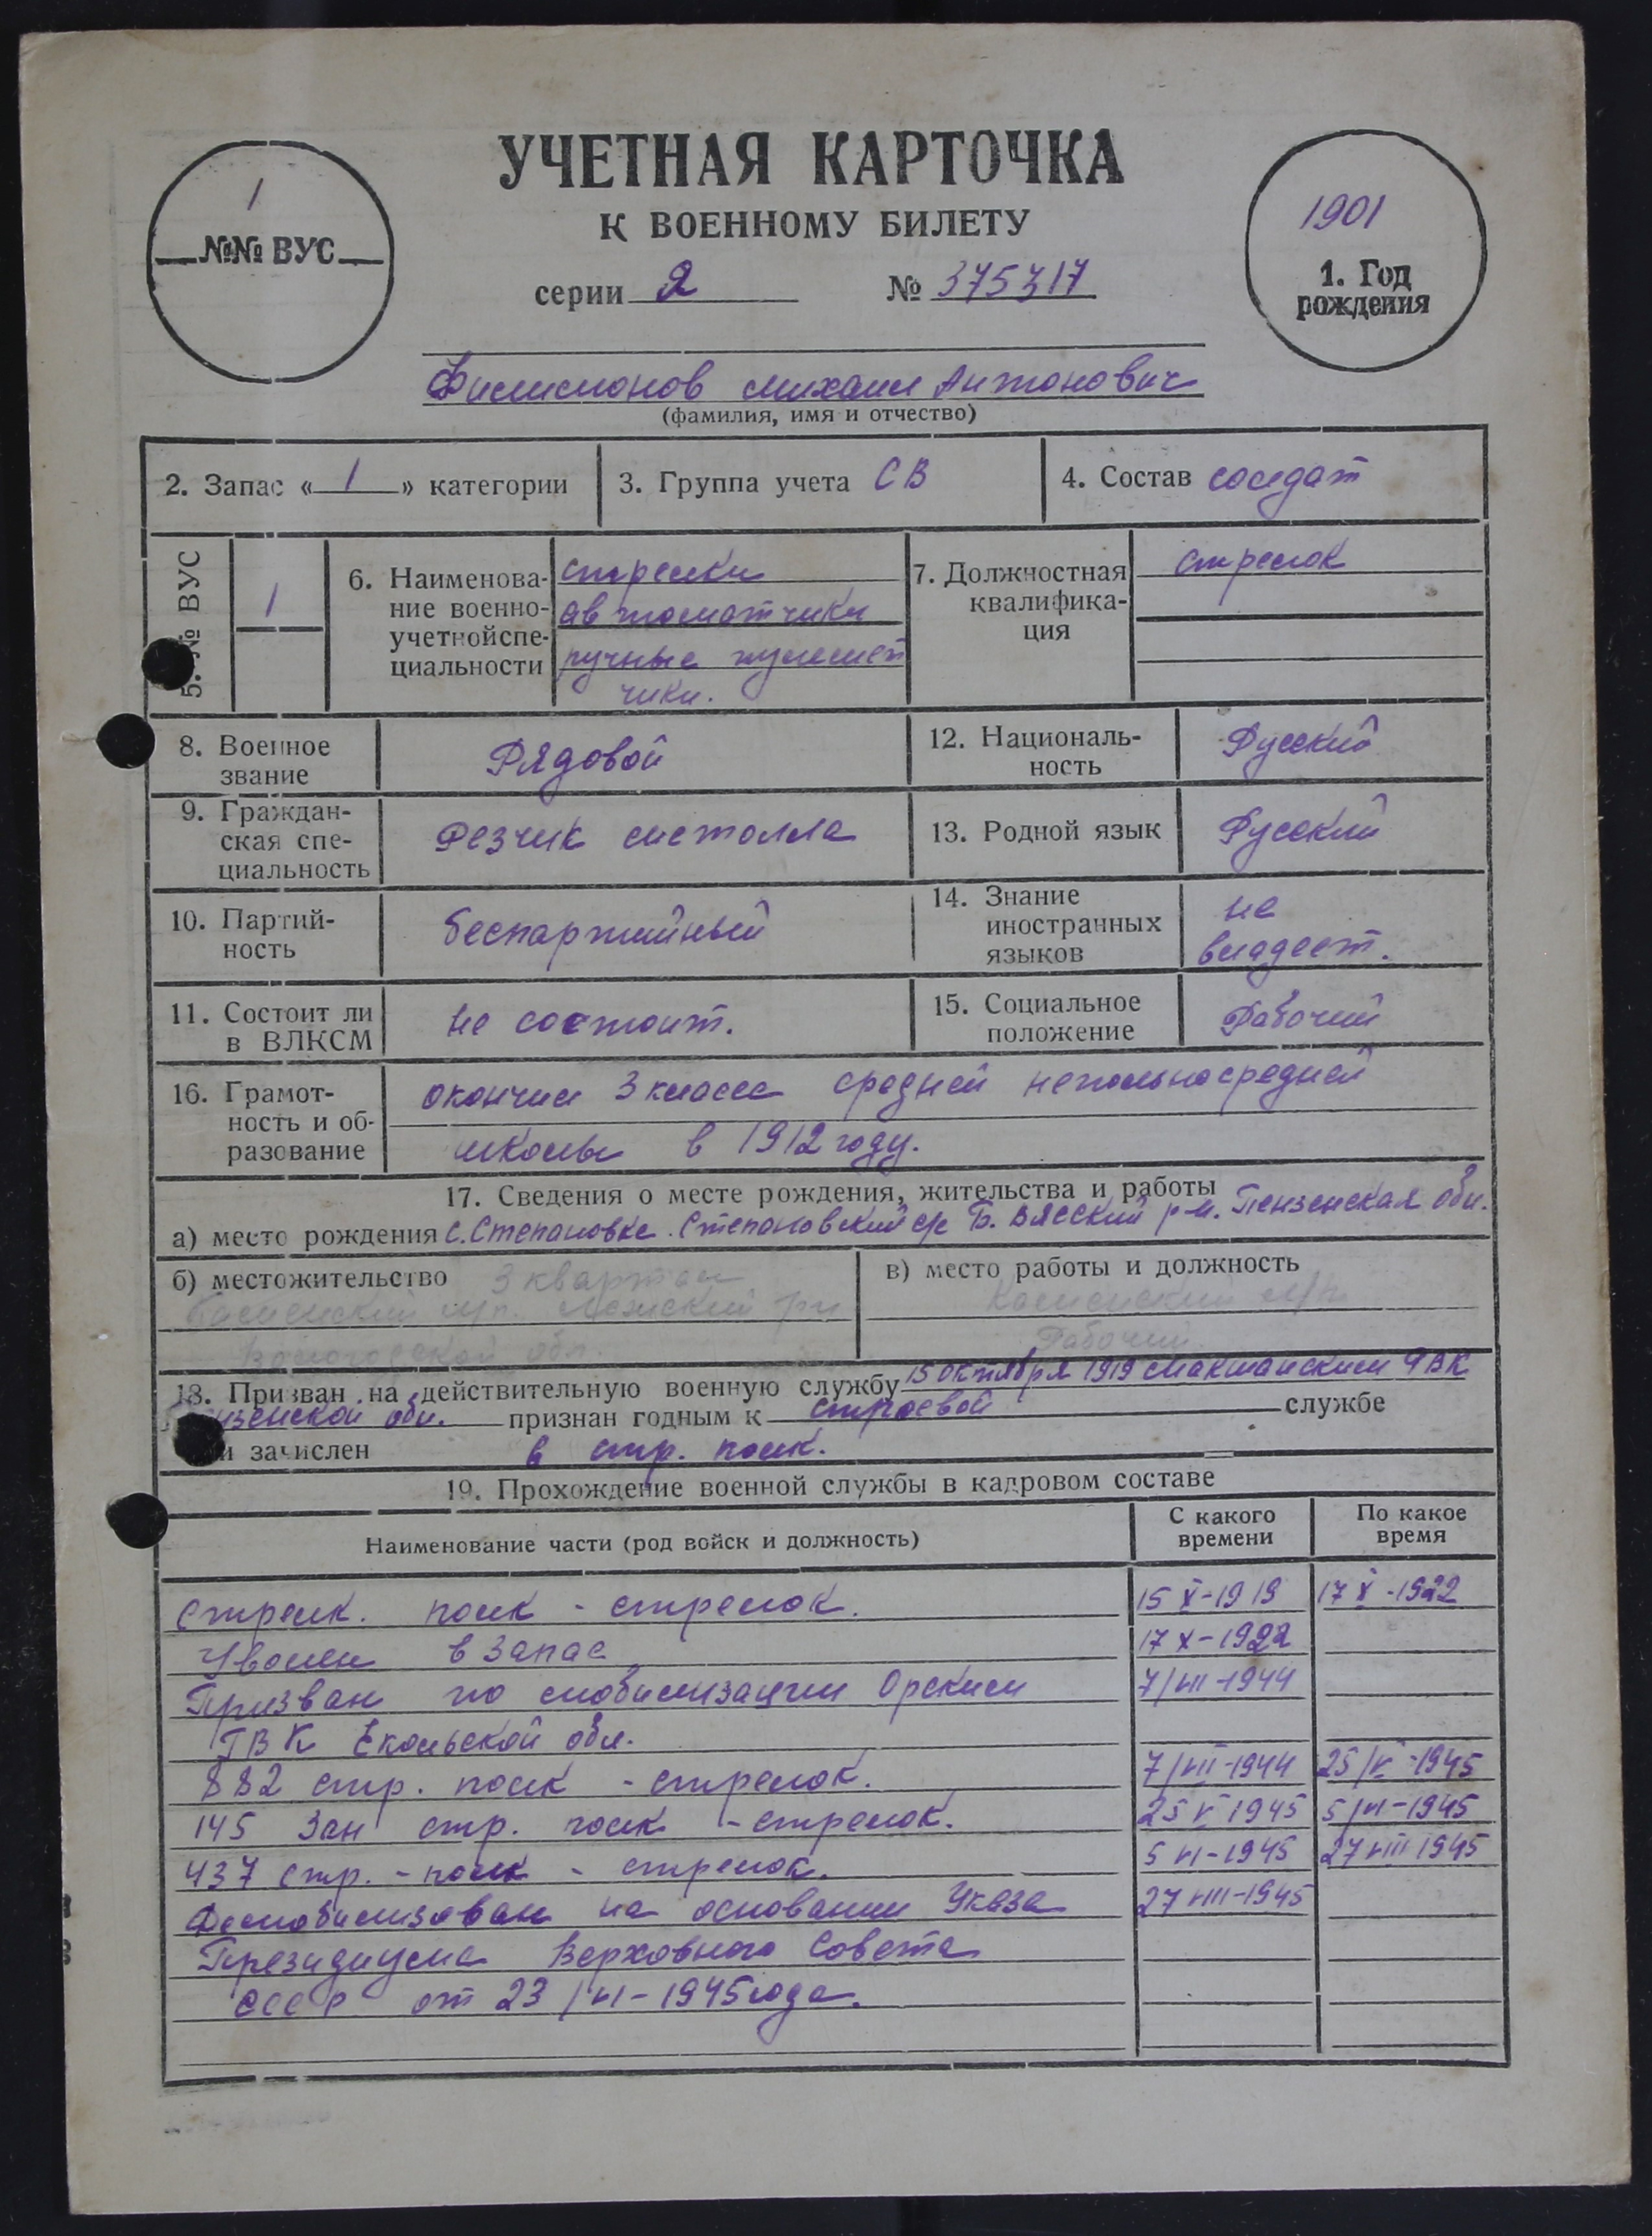 УЧЕТНАЯ КАРТОЧКА
К ВОЕННОМУ БИЛЕТУ
серии Я № 375317
1
№№ ВУС
1901
1. Год рождения
Филимонов Михаил Антонович
(фамилия, имя и отчество)
2. Запас « 1 » категории 3. Группа учета СВ 4. Состав солдат
5. № ВУС 1
6. Наименование военно-учетной специальности стрелки
автоматчики
ручные пулемет
чики.
7. Должностная квалификация стрелок
8. Военное звание Рядовой
12. Национальность Русский
9. Гражданская специальность Резчик металла
13. Родной язык Русский
10. Партийность беспартийный
14. Знание иностранных языков не владеет.
11. Состоит ли в ВЛКСМ не состоит.
15. Социальное положение Рабочий
16. Грамотность и образование окончил 3 класса средней неполносредней
школы в 1912 году.
17. Сведения о месте рождения, жительства и работы
а) место рождения с. Степановке Степановский с/с Б. Вясский р-н. Пензенская обл.
б) местожительство 3 квартал
Вологодской обл.
в) место работы и должность
Рабочий
18. Призван на действительную военную службу 15 октября 1919 Мокшанским РВК
Пензенской обл. признан годным к строевой службе
и зачислен в стр. полк.
19. Прохождение военной службы в кадровом составе
Наименование части (род войск и должность) С какого времени По какое время
Стрелк. полк - стрелок. 15 X-1919 17 X-1922
Уволен в запас 17 X-1922
Призван по мобилизации Орским 7/VII-1944
ГВК Чкаловской обл.
882 стр. полк - стрелок. 7/VII-1944 25/V-1945
145 Зап стр. полк - стрелок. 25 V 1945 5/VI-1945
437 стр. - полк - стрелок. 5 VI-1945 27 VIII 1945
Демобилизован на основании Указа 27 VIII-1945
Президиума Верховного Совета
СССР от 23/VI-1945 года.